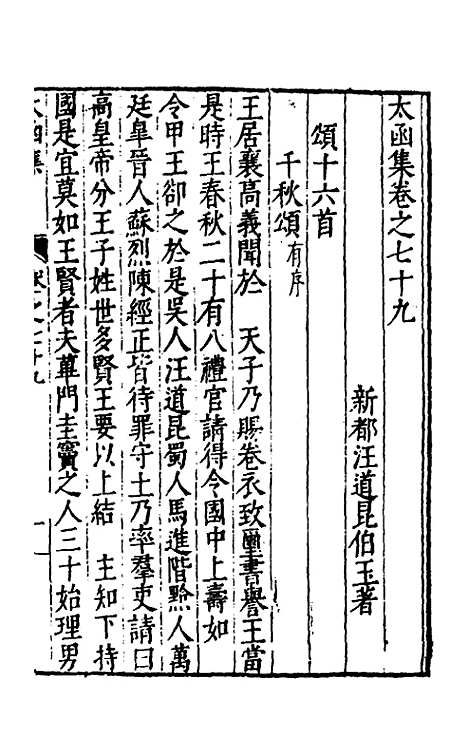 太函集卷之七十九
新都汪道昆伯玉著
頌十六首
千秋頌有序
王居襄高義聞於　天子乃賜卷衣致璽書譽王當
是時王春秋二十有八禮官請得令國中上壽如
令甲王卻之於是吳人汪道昆蜀人馬進階黔人萬
廷臯晉人蘇烈陳經正皆待罪守土乃率羣吏請曰
高皇帝分王子姓世多賢王要以上結　主知下持
國是宜莫如王賢者夫蓽門圭竇之人三十始理男
太函集　卷之七十九　一